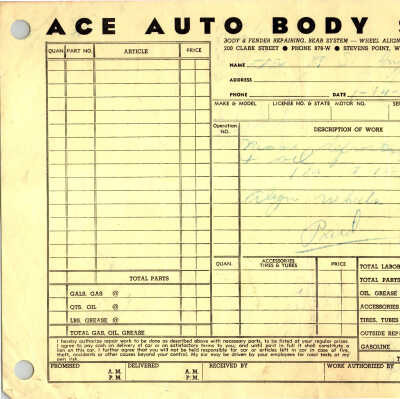 ACE AUTO BODY
BODY & FENDER REPAIRING, BEAR SYSTEM — WHEEL ALIGN
200 CLARK STREET ● PHONE 878-W ● STEVENS POINT, W
QUAN. PART NO. ARTICLE PRICE
NAME
ADDRESS
PHONE DATE
MAKE & MODEL LICENSE NO. & STATE MOTOR NO. SE
Operation NO. DESCRIPTION OF WORK
Align Wheels
Paid
QUAN. ACCESSORIES TIRES & TUBES PRICE
TOTAL LABO
TOTAL PARTS TOTAL PARTS
GALS. GAS @ OIL, GREASE
QTS. OIL @ ACCESSORIES
LBS. GREASE @ TIRES, TUBES
TOTAL GAS, OIL, GREASE OUTSIDE REP
GASOLINE
I hereby authorize repair work to be done as described above with necessary parts, to be listed at your regular prices.
I agree to pay cash on delivery of car or on satisfactory terms to you; and until paid in full it shall constitute a
lien on this car. I further agree that you will not be held responsible for car or articles left in car in case of fire,
theft, accidents or other causes beyond your control. My car may be driven by your employees for road tests at my
own risk.
PROMISED A. M. P. M. DELIVERED A. M. P. M. RECEIVED BY WORK AUTHORIZED BY